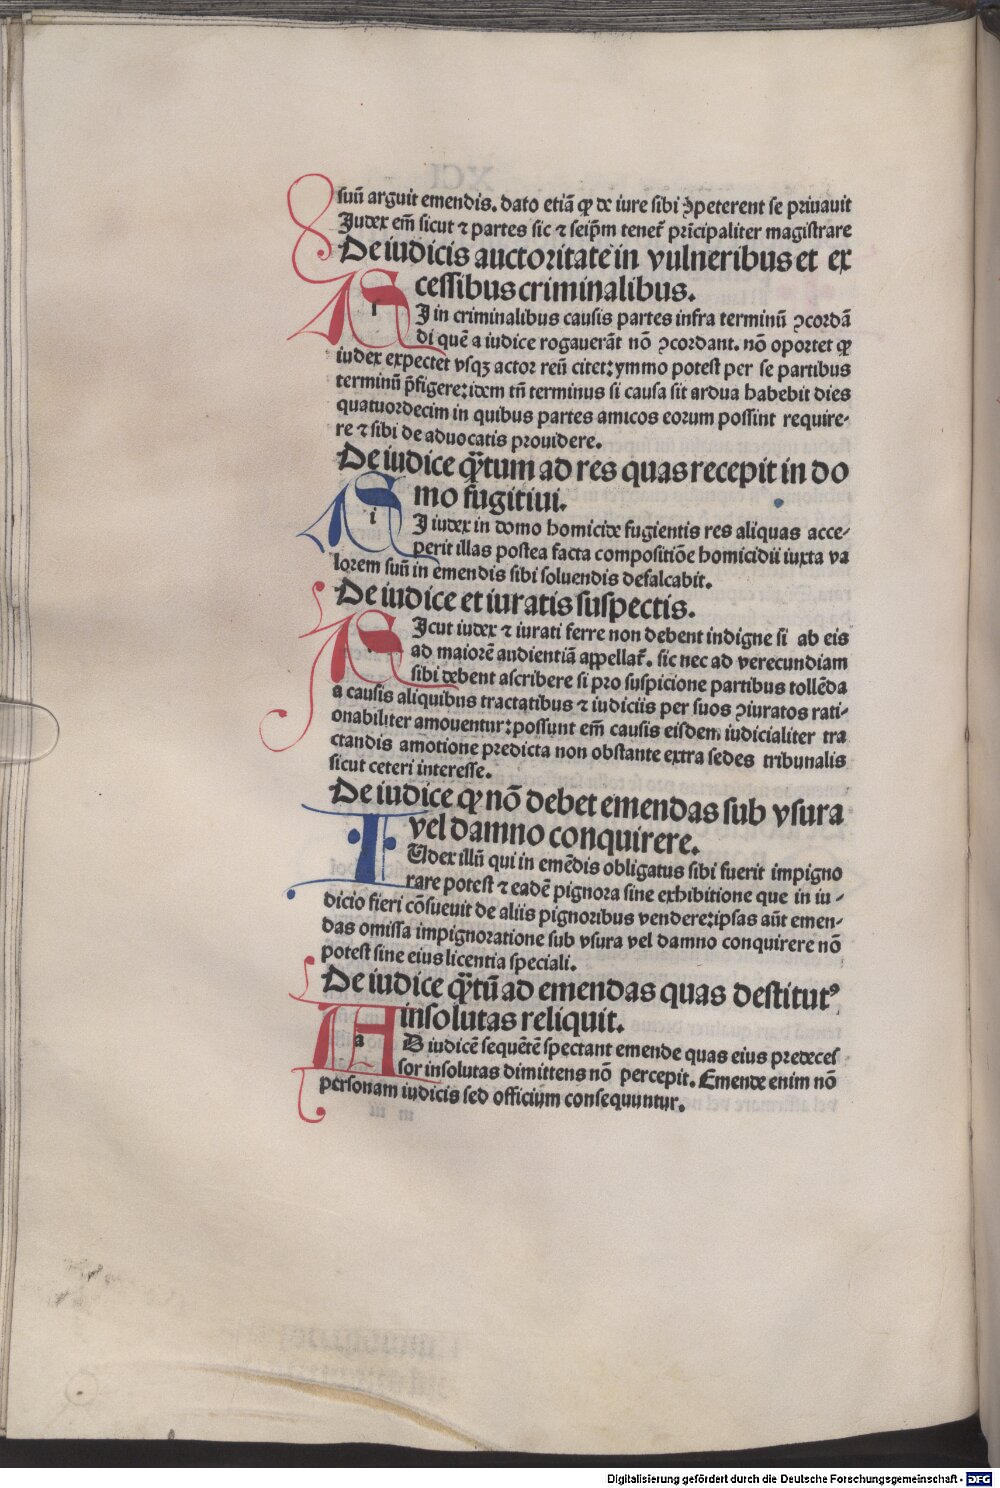 suū arguit emendis. dato etiā ꝙ de iure sibi ꝯpeterent se priuauit
Judex em̄ sicut ⁊ partes sic ⁊ seip̄m tenet᷑ prīcipaliter magistrare
De iudicis auctoritate in vulneribus et ex
cessibus criminalibus.
SJ in criminalibus causis partes infra terminū ꝯcordā
di quē a iudice rogauerāt nō ꝯcordant. nō oportet ꝙ
iudex expectet vsqꝫ actor reū citet: ymmo potest per se partibus
terminū p̄figere: idem tn̄ terminus si causa sit ardua habebit dies
quatuordecim in quibus partes amicos eorum possint require-
re ⁊ sibi de aduocatis prouidere.
De iudice qᷓtum ad res quas recepit in do
mo fugitiui.
SJ iudex in domo homicide fugientis res aliquas acce-
perit illas postea facta compositiōe homicidii iuxta va
lorem suū in emendis sibi soluendis defalcabit.
De iudice et iuratis suspectis.
SJcut iudex ⁊ iurati ferre non debent indigne si ab eis
ad maiorē audientiā appellat᷑. sic nec ad verecundiam
sibi debent ascribere si pro suspicione partibus tollēda
a causis aliquibus tractatibus ⁊ iudiciis per suos ꝯiuratos rati-
onabiliter amouentur: possunt em̄ causis eisdem iudicialiter tra
ctandis amotione predicta non obstante extra sedes tribunalis
sicut ceteri interesse.
De iudice ꝙ nō debet emendas sub vsura
vel damno conquirere.
IUdex illū qui in emēdis obligatus sibi fuerit impigno
rare potest ⁊ eadē pignora sine exhibitione que in iu-
dicio fieri cōsueuit de aliis pignoribus vendere: ipsas aūt emen-
das omissa impignoratione sub vsura vel damno conquirere nō
potest sine eius licentia speciali.
De iudice qᷓtū ad emendas quas destitutꝰ
insolutas reliquit.
AD iudicē sequētē spectant emende quas eius predeces
sor insolutas dimittens nō percepit. Emende enim nō
personam iudicis sed officium consequuntur.
Digitalisierung gefördert durch die Deutsche Forschungsgemeinschaft - DFG